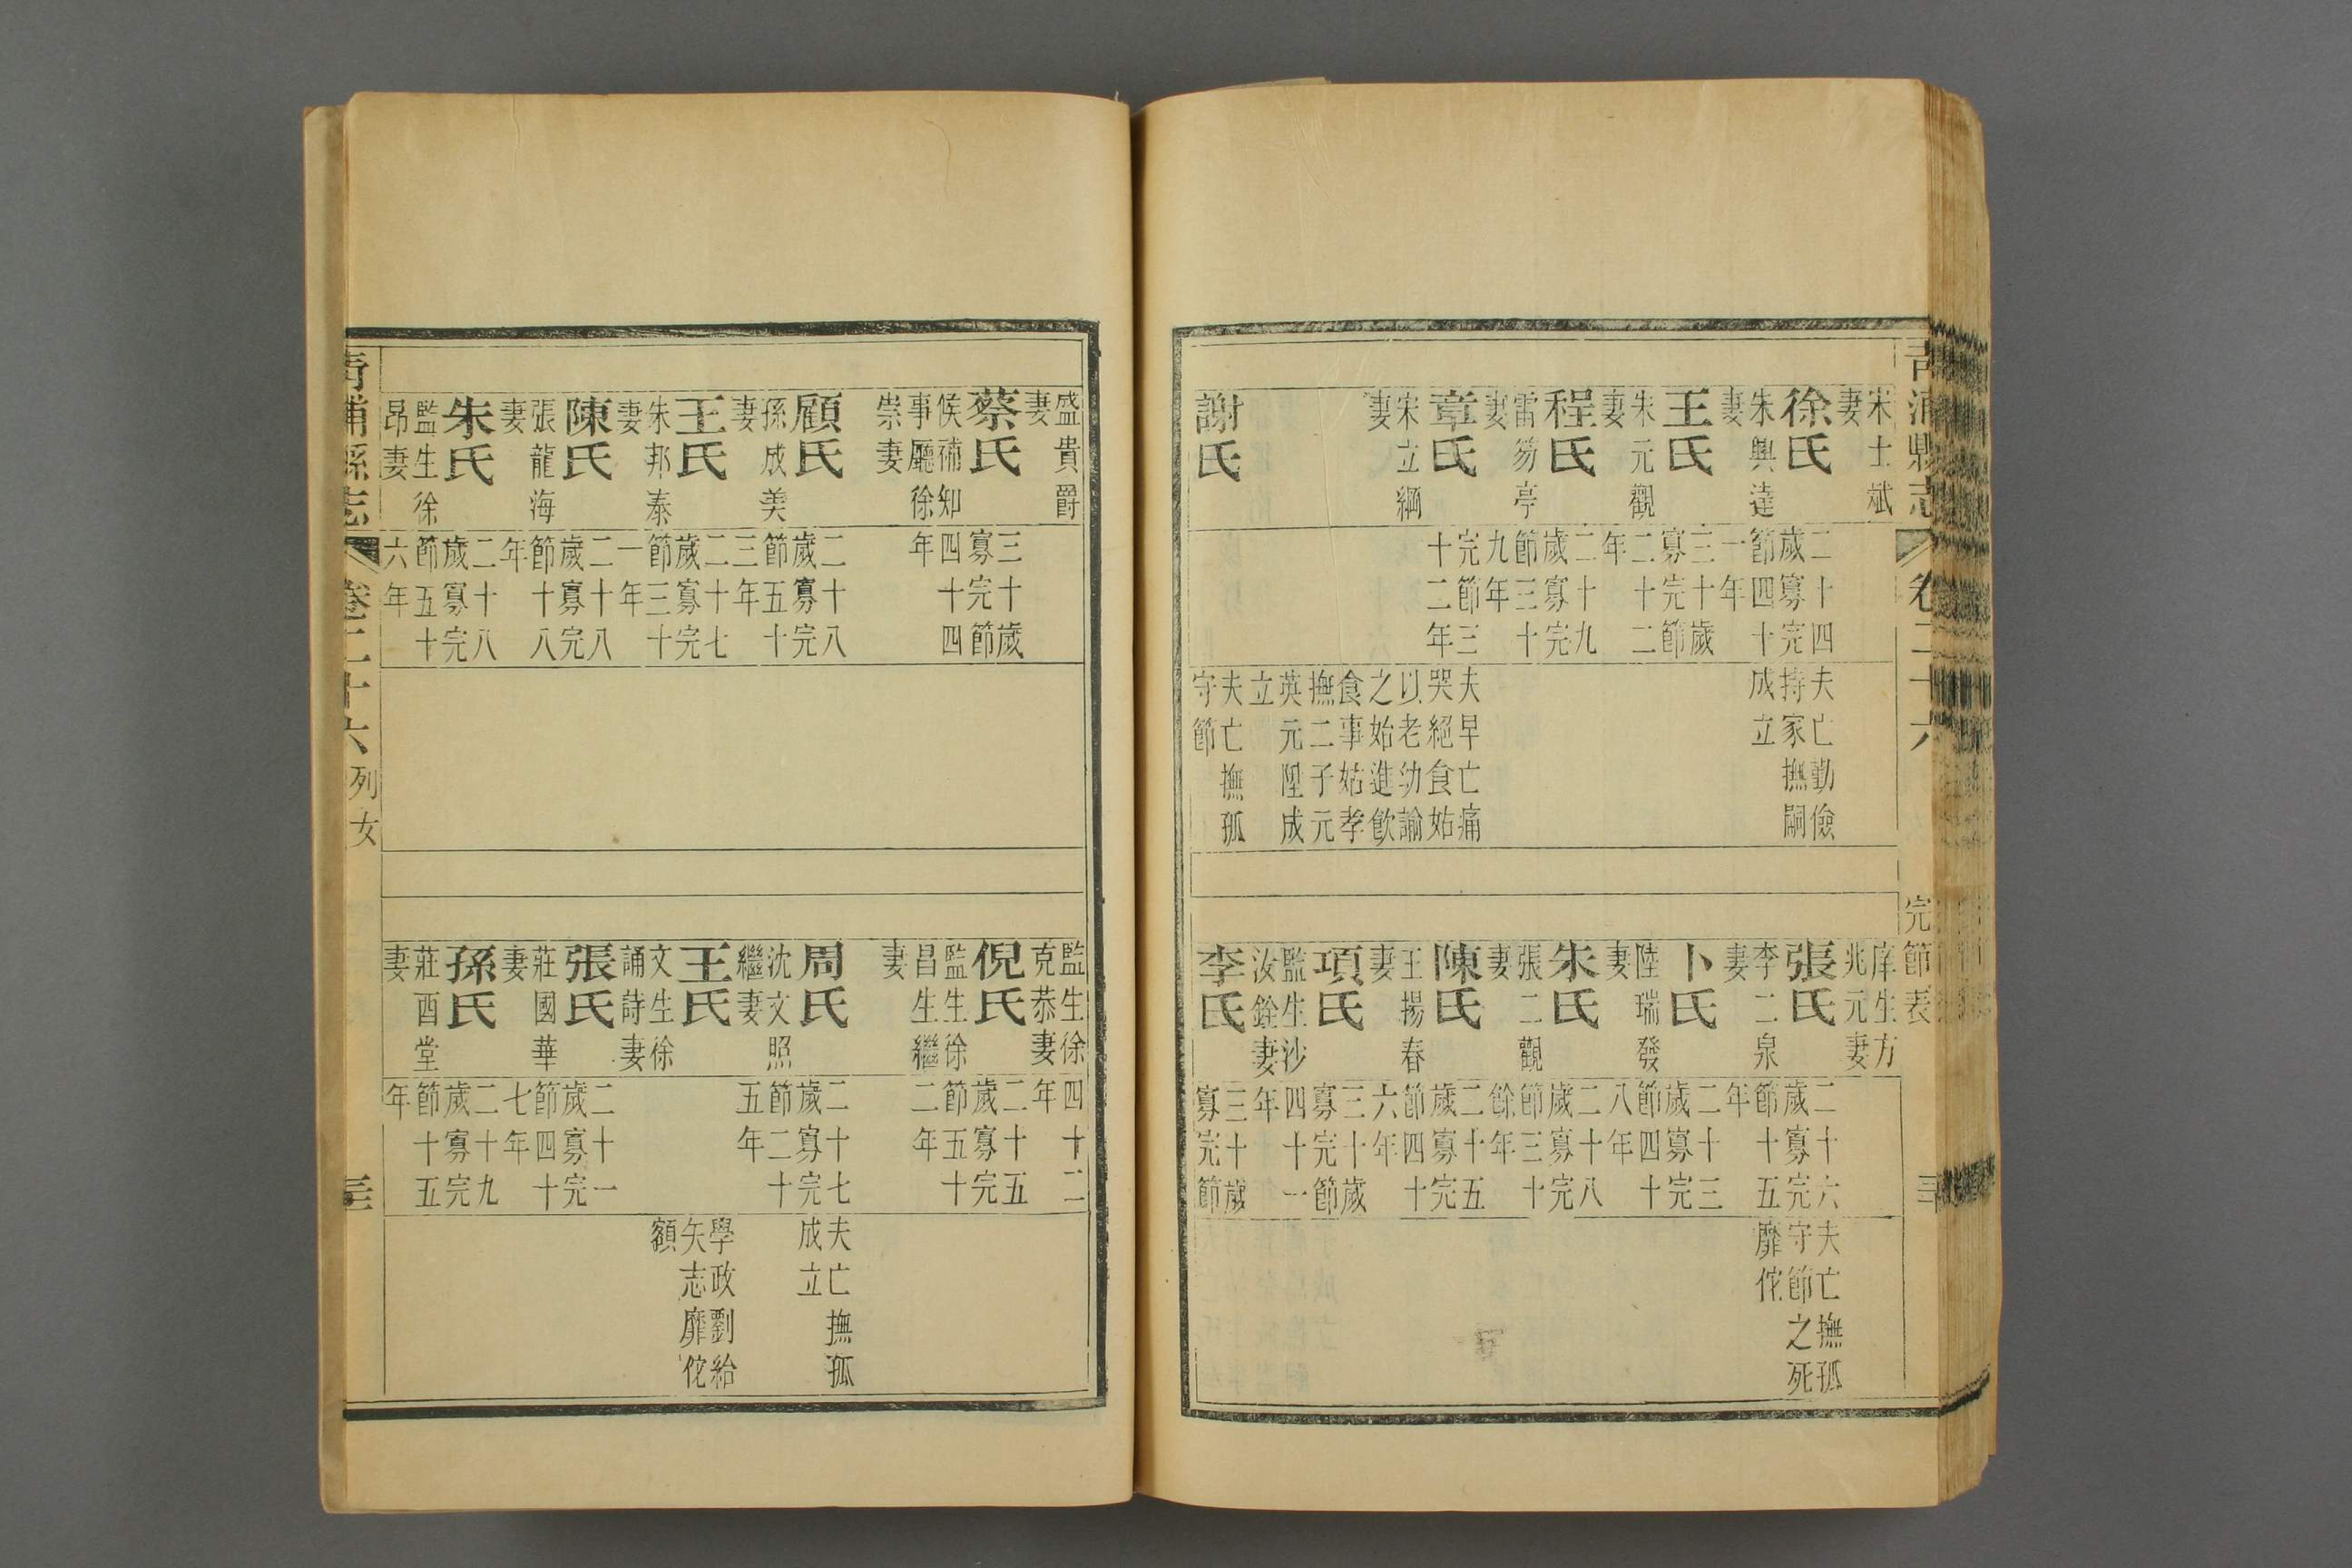 青浦縣志
卷二十六
完節表
宋士斌
妻
徐氏
朱興達
妻
王氏
朱元觀
妻
程氏
雷芴亭
妻
章氏
宋立綱
妻
謝氏
二十四
歲寡完
節四十
一年
三十歲
寡完節
二十二
年
二十九
歲寡完
節三十
九年
完節三
十二年
夫亡勤儉
持家撫嗣
成立
夫早亡痛
哭絕食姑
以老幼諭
之始進飲
食事姑孝
撫二子元
英元陞成
立
夫亡撫孤
守節
庠生方
兆元妻
張氏
李二泉
妻
卜氏
陸瑞發
妻
朱氏
張二觀
妻
陳氏
王揚春
妻
項氏
監生沙
汝銓妻
李氏
二十六
歲寡完
節十五
年
二十三
歲寡完
節四十
八年
二十八
歲寡完
節三十
餘年
二十五
歲寡完
節四十
六年
三十歲
寡完節
四十一
年
三十歲
寡完節
夫亡撫孤
守節之死
靡佗
盛貴爵
妻
蔡氏
候補知
事廳徐
崇妻
顧氏
孫成美
妻
王氏
朱邦泰
妻
陳氏
張龍海
妻
朱氏
監生徐
昂妻
三十歲
寡完節
四十四
年
二十八
歲寡完
節五十
三年
二十七
歲寡完
節三十
一年
二十八
歲寡完
節十八
年
二十八
歲寡完
節五十
六年
監生徐
克恭妻
倪氏
監生徐
昌生繼
妻
周氏
沈文照
繼妻
王氏
文生徐
誦詩妻
張氏
莊國華
妻
孫氏
莊酉堂
妻
四十二
年
二十五
歲寡完
節五十
二年
二十七
歲寡完
節二十
五年
二十一
歲寡完
節四十
七年
二十九
歲寡完
節十五
年
夫亡撫孤
成立
學政劉給
矢志靡佗
額
青浦縣志
卷二十六
列女